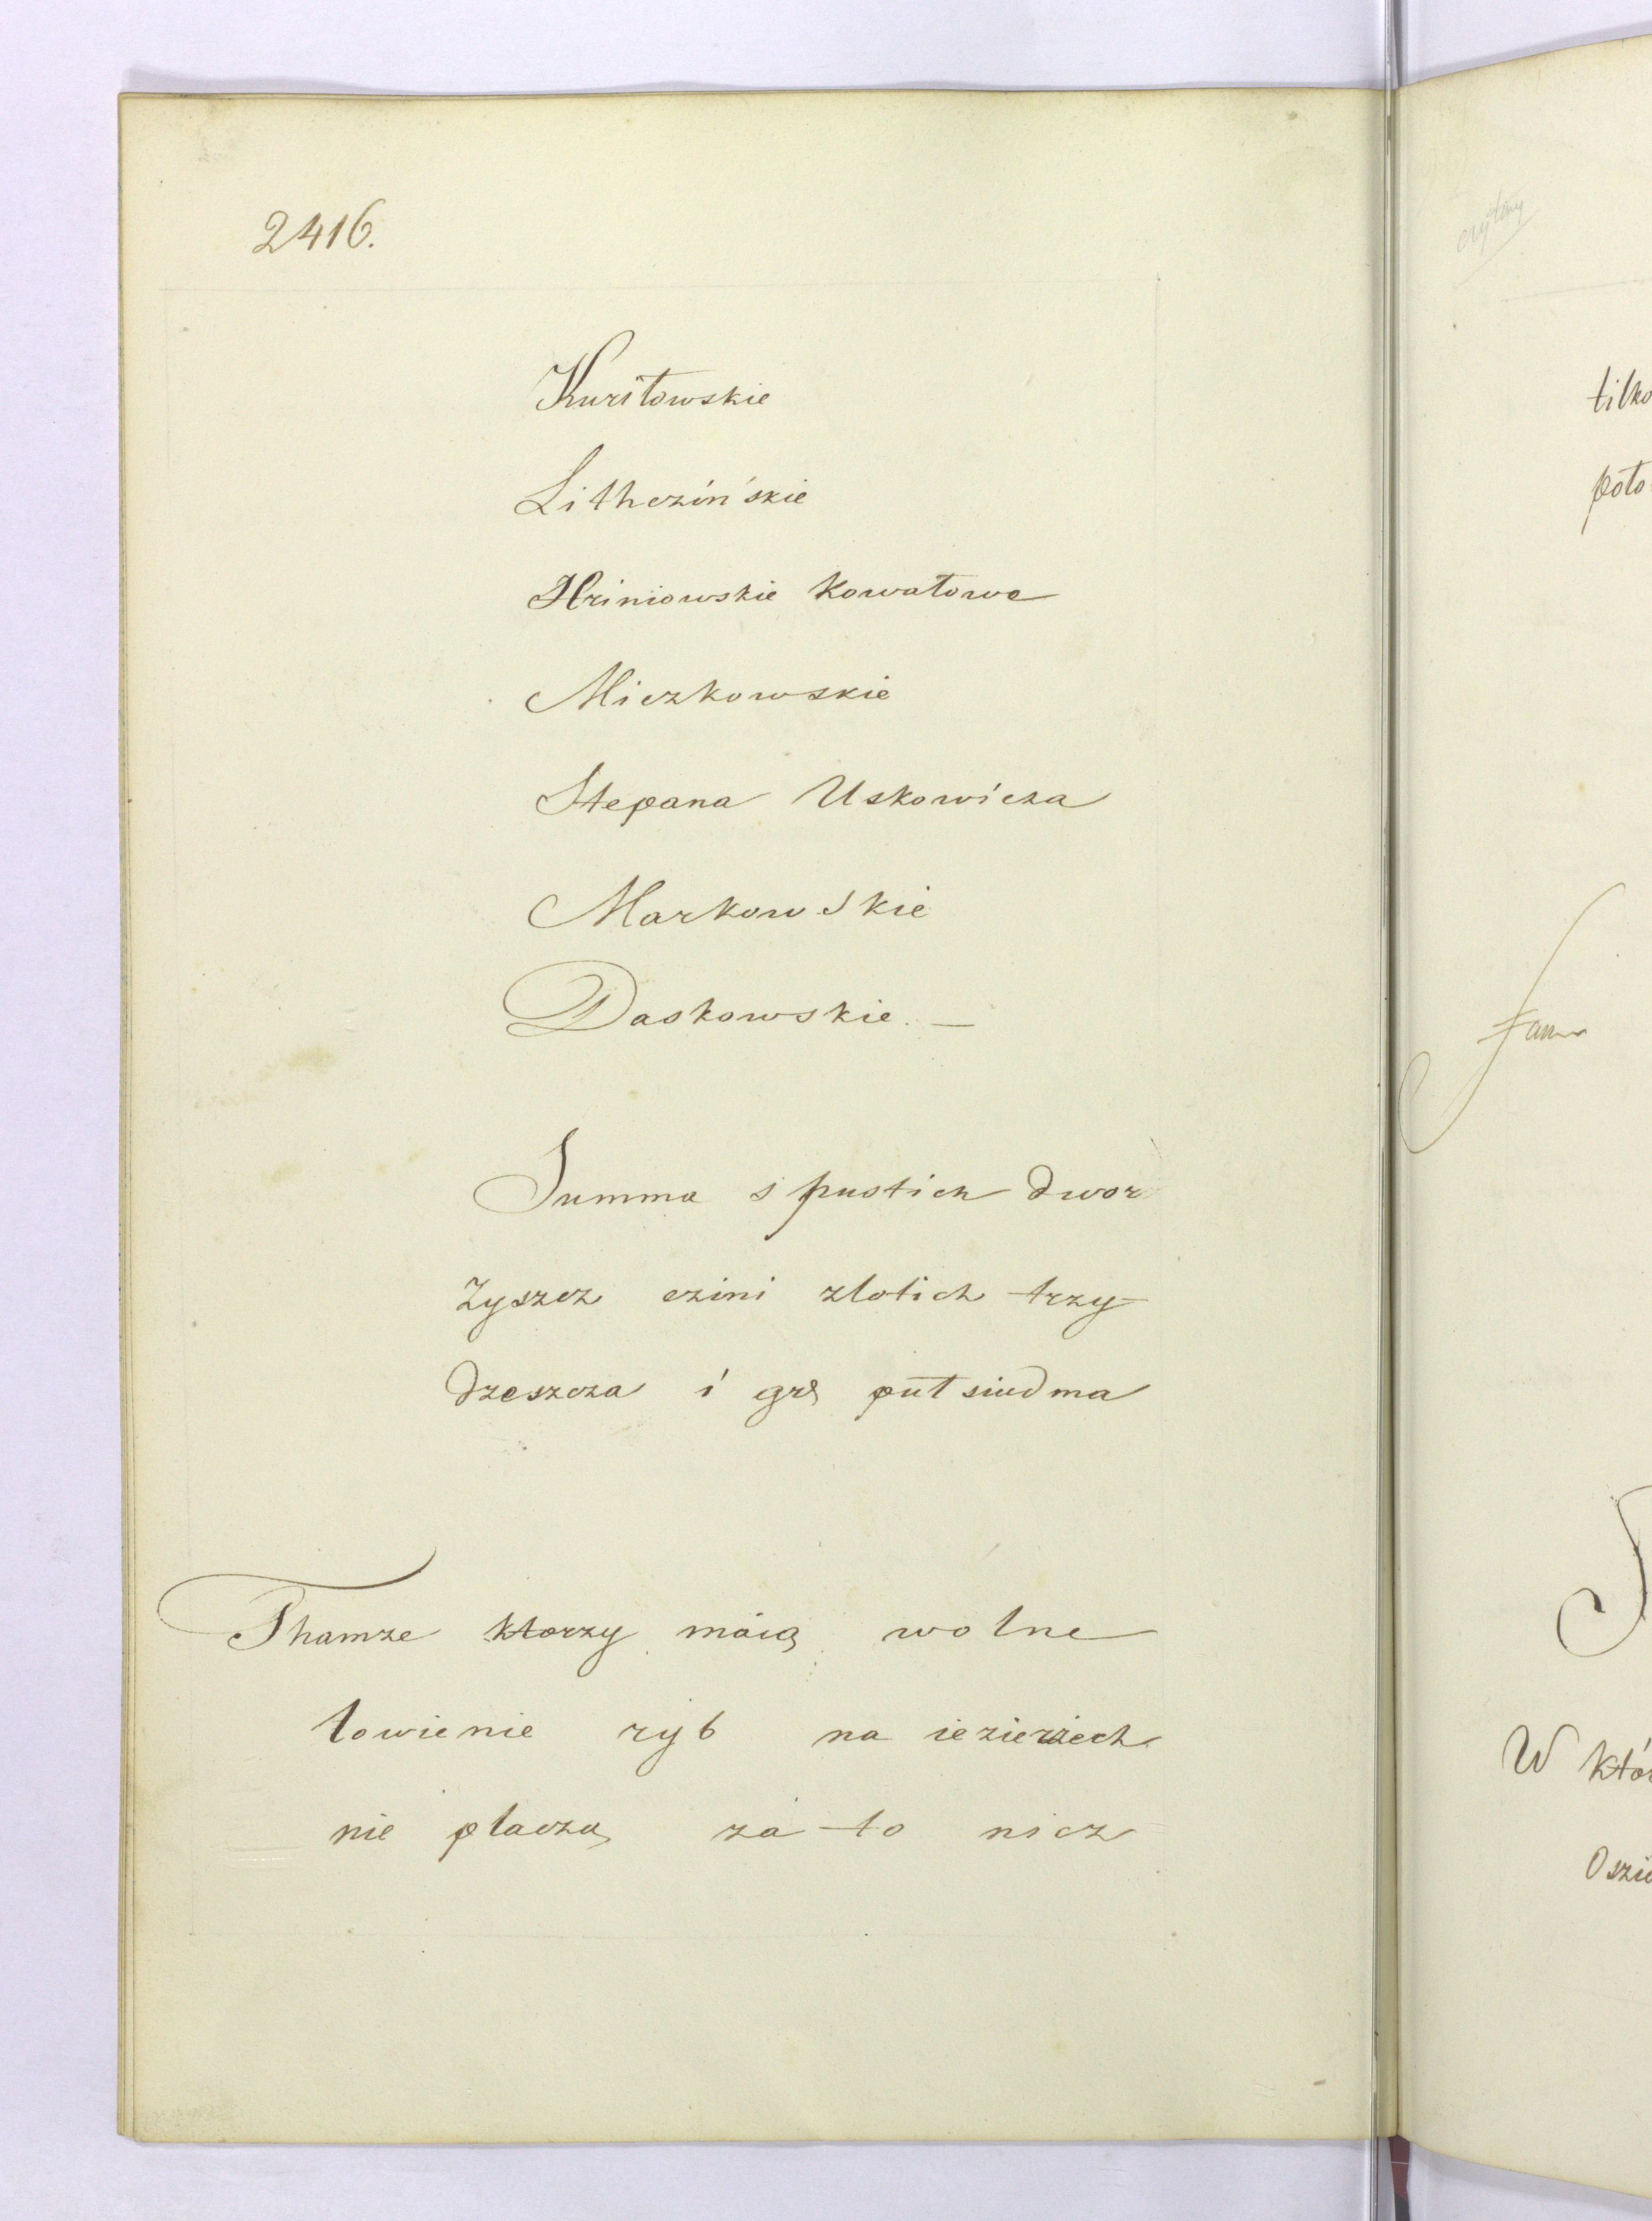 2416.
Kuriłowskie
Lithczińskie
Hriniowskie Kowałowe
Miczkowskie
Stepana Uskowicza
Markowskie
Daskowskie. —
Summa s pustich dwor
zyszcz czini zlotich trzy
dzeszcza i grs puł siudma
Thamze ktorzy maią wolne
łowienie ryb na iezierzech
nie placzą za to nicz
tilko
poło
W któr
Oszie